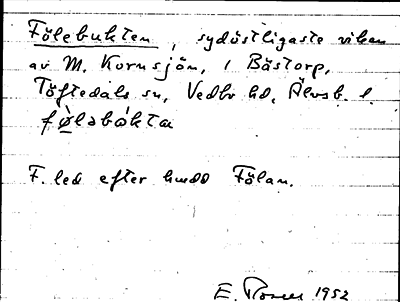 Fölebukten, sydöstligaste viken
av M. Kornsjön, i Båstorp,
Töftedals sn, Vedbo hd, Älvsb. l.
fø̀ləbòkta
F. led efter hmdd Fölan.
E. 1952